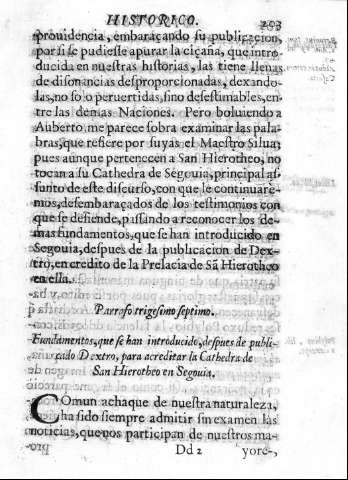 HISTORICO. 203
prouidencia, embaraçando su publicacion,
por si se pudiesse apurar la ciçaña, que intro-
ducida en nuestras historias, las tiene llenas
de disonancias desproporcionadas, dexando-
las, no solo peruertidas, sino desestimables, en-
tre las demas Naciones. Pero boluiendo a
Auberto me parece sobra examinar las pala-
bras, que refiere por suyas el Maestro Silua;
pues aunque pertenecen a San Hierotheo, no
tocan a su Cathedra de Segouia, principal as-
sunto de este discurso, con que le continuarè-
mos, desembaraçados de los testimonios con
que se defiende, passando a reconocer los de-
mas fundamentos, que se han introducido en
Segouia, despues de la publicacion de Dex-
tro, en credito de la Prelacia de Sã Hierotheo
en ella.
Parrafo trigesimo septimo.
Fundamentos, que se han introducido, despues de publi-
cado Dextro, para acreditar la Cathedra de
San Hierotheo en Segouia.
COmun achaque de nuestra naturaleza,
ha sido siempre admitir sin examen las
noticias, que nos participan de nuestros ma-
Dd 2 yore-,